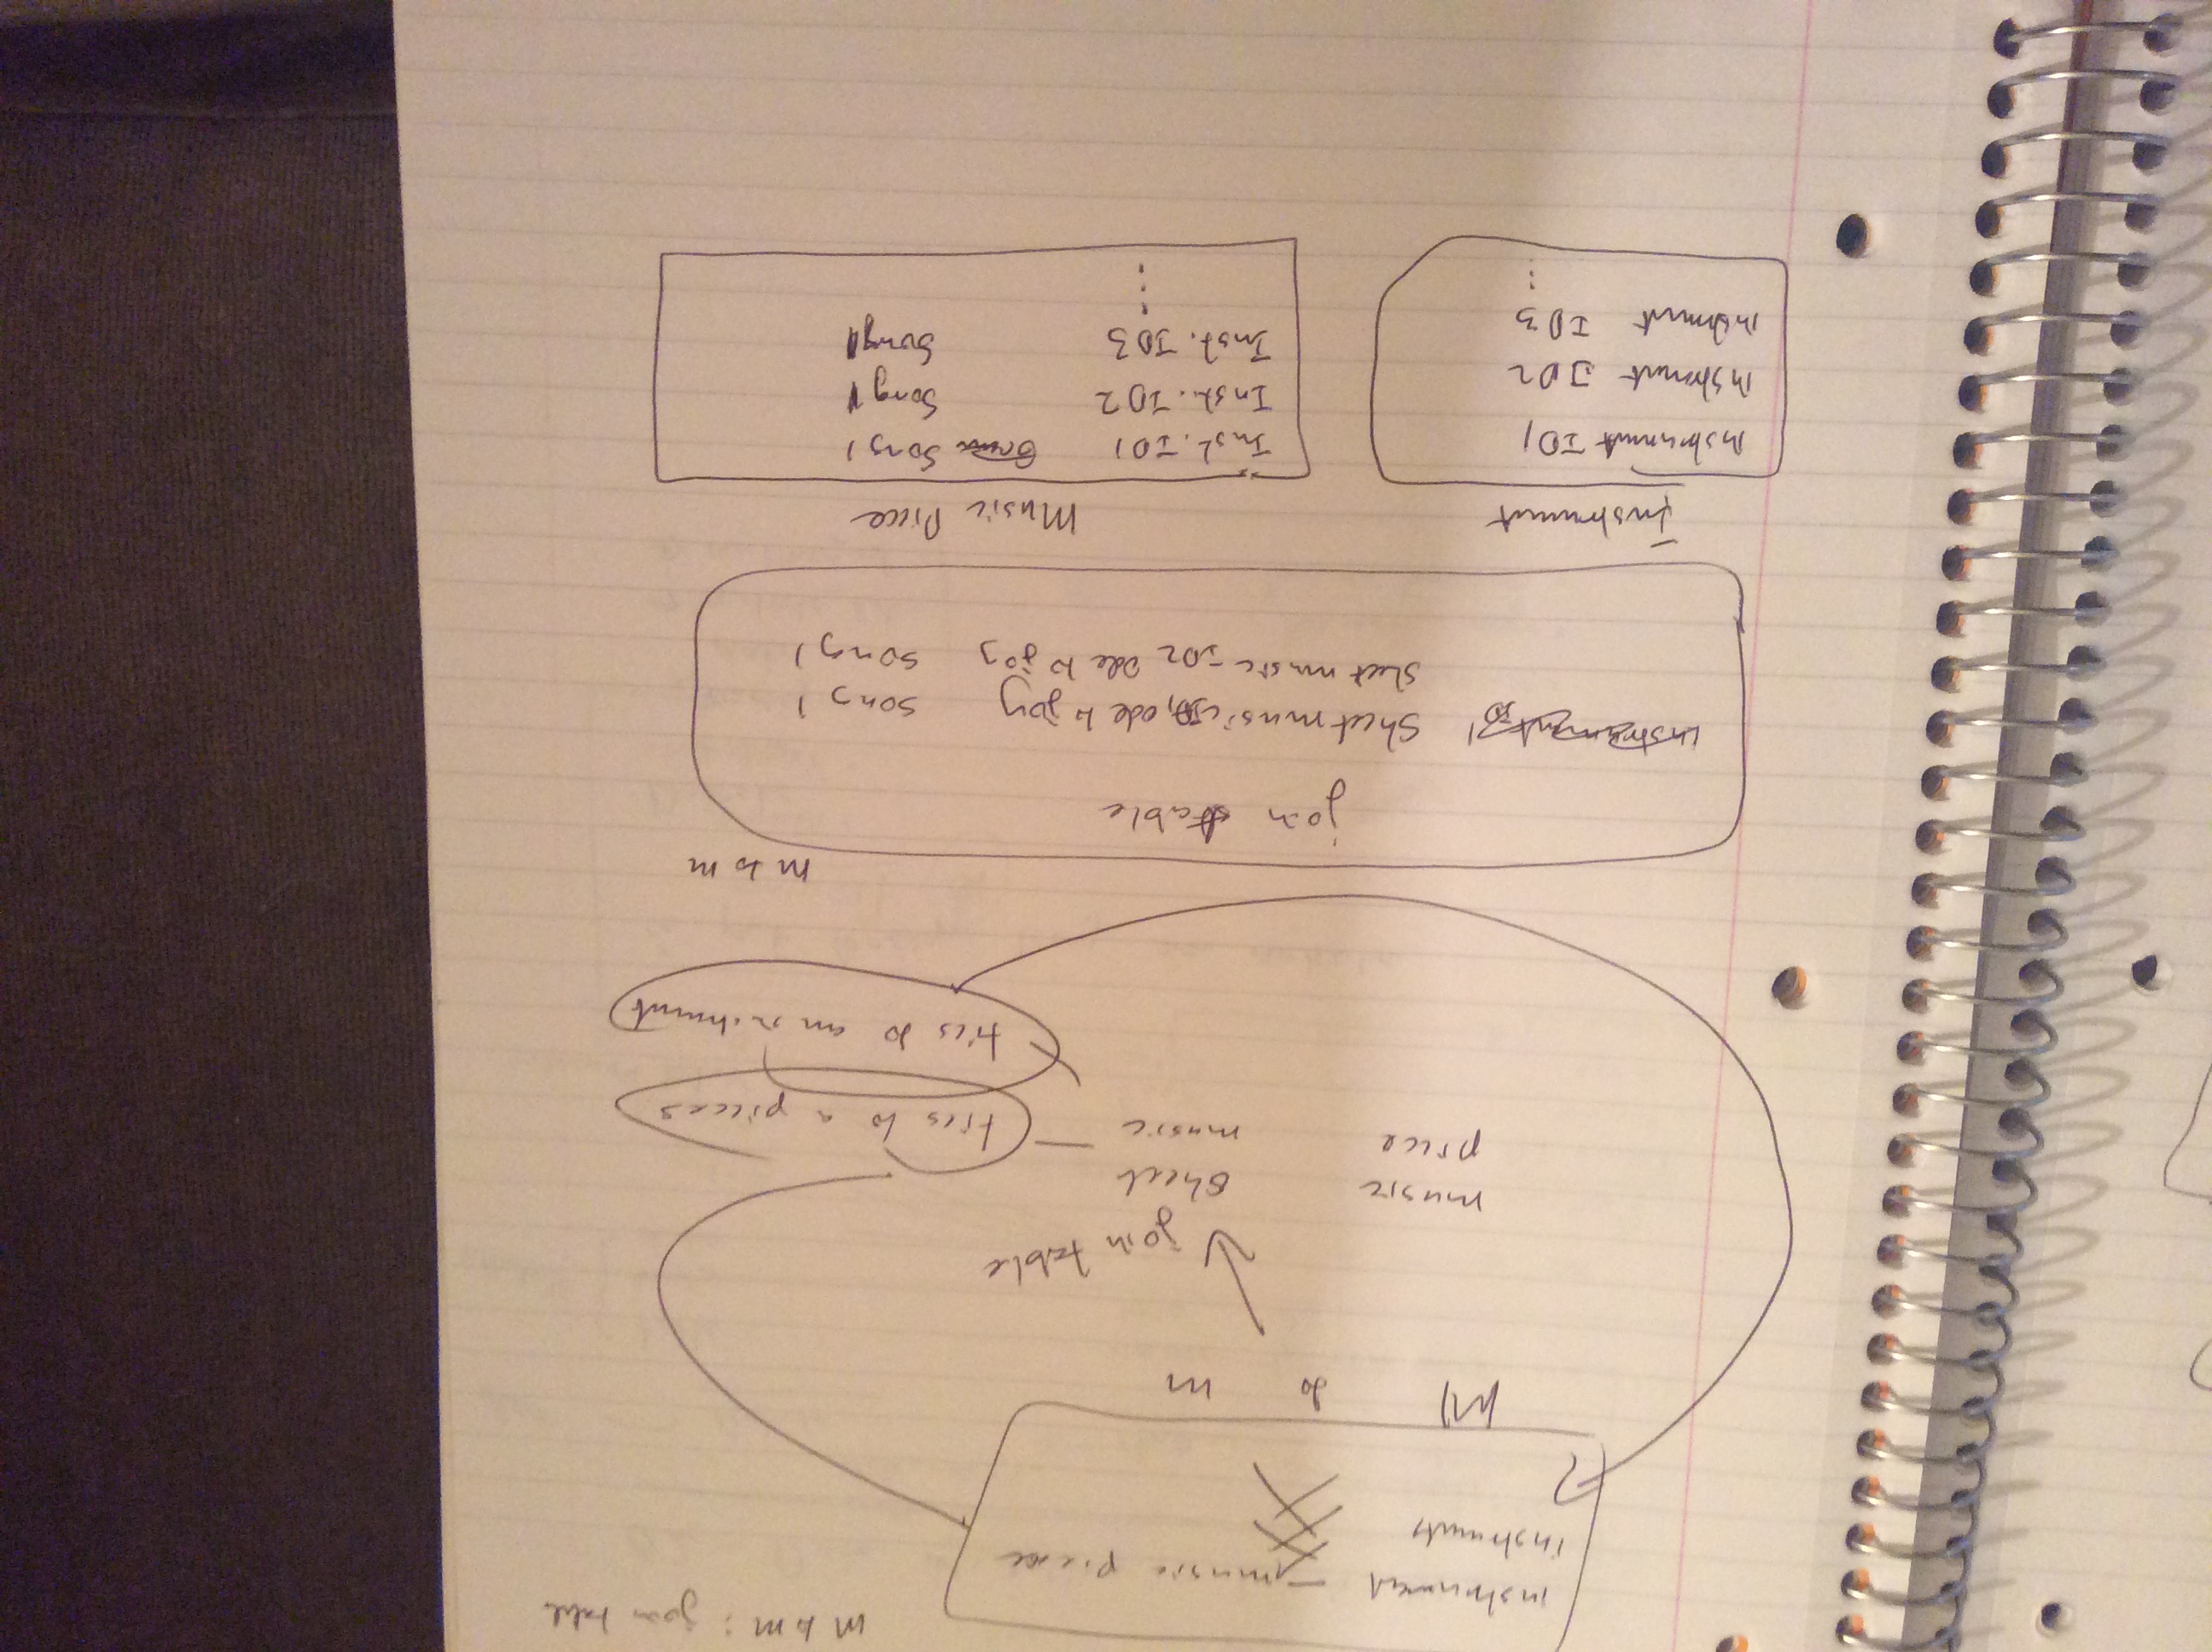 m to m : join table
instrument — music piece
instruments
M to m
join table
music sheet
piece music — ties to a pieces
ties to an instrument
m to m
join table
Sheet music ID1 ode to joy song 1
sheet music ID2 Ode to joy song 1
Instrument Music Piece
Instrument ID1 Inst. ID1 Song 1
Instrument ID2 Inst. ID2 Song 1
instrument ID3 Inst. ID3 Song 1